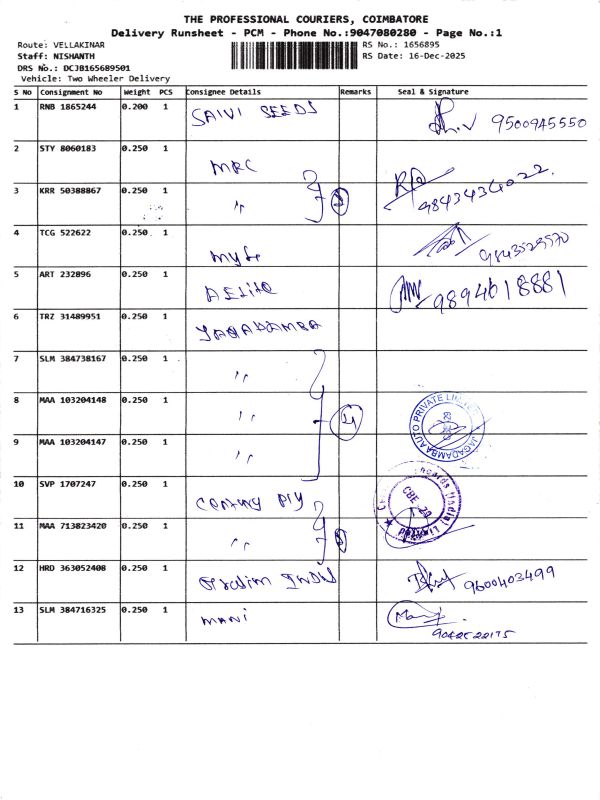 THE PROFESSIONAL COURIERS, COIMBATORE
Delivery Runsheet - PCM - Phone No.:9047080280 - Page No.:1
Route: VELLAKINAR RS No.: 1656895
Staff: NISHANTH RS Date: 16-Dec-2025
DRS No.: DCJB165689501
Vehicle: Two Wheeler Delivery
S No Consignment No Weight PCS Consignee Details Remarks Seal & Signature
1 RNB 1865244 0.200 1 SAIVI SEEDS 9500945550
2 STY 8060183 0.250 1 MRC
3 KRR 50388867 0.250 1 " 9843434022
4 TCG 522622 0.250 1 9843529570
5 ART 232896 0.250 1 AELITE 9894618881
6 TRZ 31489951 0.250 1 JAGADAMBA
7 SLM 384738167 0.250 1 "
8 MAA 103204148 0.250 1 " 4 JAGADAMBA AUTO PRIVATE LIMITED
9 MAA 103204147 0.250 1 "
10 SVP 1707247 0.250 1 Century Ply
11 MAA 713823420 0.250 1 "
12 HRD 363052408 0.250 1 9600403499
13 SLM 384716325 0.250 1 MANI